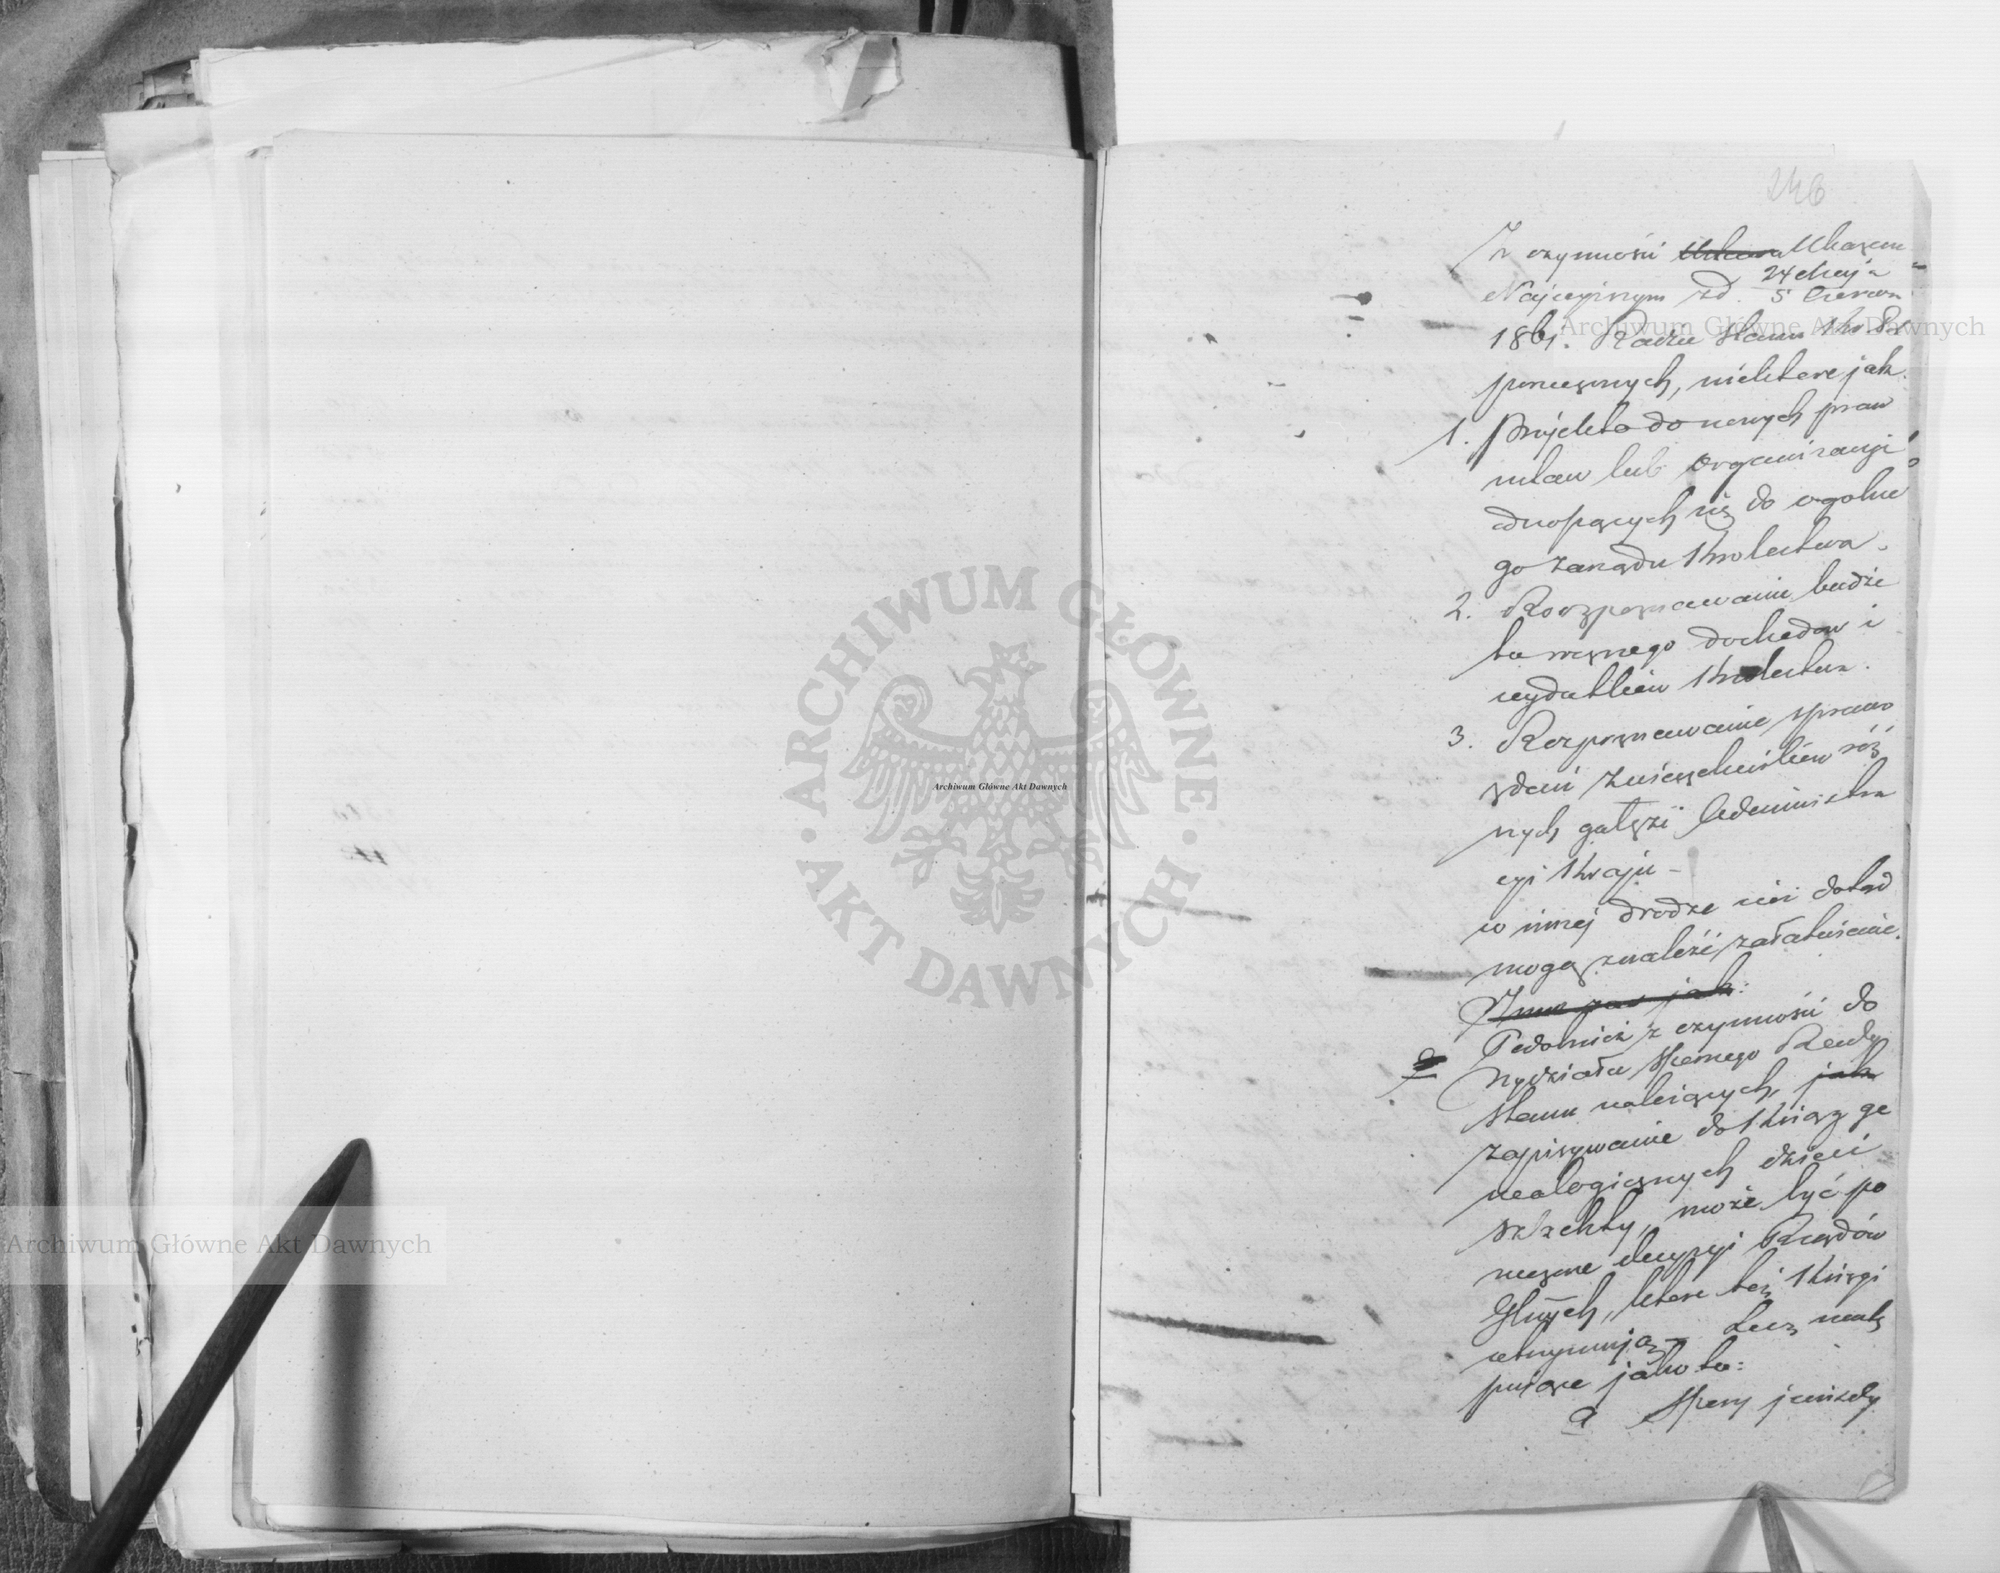 246
Z czynności Ukazem
Najwyższym zd. 24 Maja
5 Czerwca
1861. Radzie Stanu Król. Pol
poruczonych, niektóre jak
1. Projekta do nowych praw
ustaw lub organizacyi
odnoszących się do ogólne
go zarządu Królestwa.
2. Rozpoznawanie budże
tu rocznego dochodów i
wydatków Królestwa.
3. Rozpoznawanie sprawo
zdań zwierzchników róż
nych gałęzi Administra
cyi Kraju –
w innej drodze niż dotąd
mogą znaleźć załatwienie.
Inne zaś jak:
Podobnież z czynności do
Wydziału Spornego Rady
Stanu należących, jak
zapisywanie do Ksiąg ge
nealogicznych dzieci
szlachty, może być po
ruczone decyzyi Rządów
Gubych, które też Księgi
utrzymują – Lecz nastę
pujące jako to:
a Spory jurisdy
ARCHIWUM GŁÓWNE AKT DAWNYCH
Archiwum Główne Akt Dawnych
Archiwum Główne Akt Dawnych
Archiwum Główne Akt Dawnych